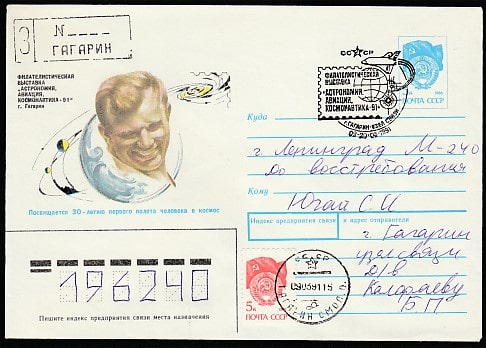 З N
ГАГАРИН
ФИЛАТЕЛИСТИЧЕСКАЯ
ВЫСТАВКА
„АСТРОНОМИЯ,
АВИАЦИЯ,
КОСМОНАВТИКА-91"
г. Гагарин
Посвящается 30-летию первого полета человека в космос
СССР
ФИЛАТЕЛИСТИЧЕСКАЯ
ВЫСТАВКА
„АСТРОНОМИЯ,
АВИАЦИЯ,
КОСМОНАВТИКА-91"
Г. ГАГАРИН УЗЕЛ СВЯЗИ
ПОЧТА СССР
Куда
г. Ленинград М-240
до востребования
Кому
Югай С И
Индекс предприятия связи и адрес отправителя
г. Гагарин
узел связи
Д/В
Б П
196240
Пишите индекс предприятия связи места назначения
5к
ПОЧТА СССР
СССР
ГАГАРИН СМОЛ.